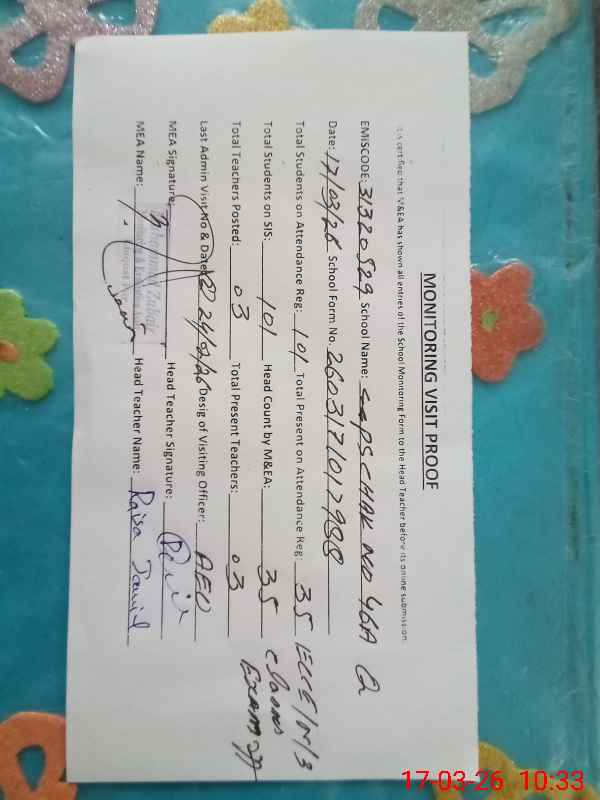 MONITORING VISIT PROOF
It is certified that M&EA has shown all entries of the School Monitoring Form to the Head Teacher before its online submission.
EMISCODE: 31320529 School Name: PS CHAK NO 46A
Date: 17/03/26 School Form No. 2603171017988
Total Students on Attendance Reg: 101 Total Present on Attendance Reg: 35 ECE/N/3
Total Students on SIS: 101 Head Count by M&EA: 35 classes
Exam
Total Teachers Posted: 03 Total Present Teachers: 03
Last Admin Visit No & Date: 24/02/26 Desig of Visiting Officer: AEO
MEA Signature: Head Teacher Signature:
MEA Name: Head Teacher Name:
17-03-26 10:33